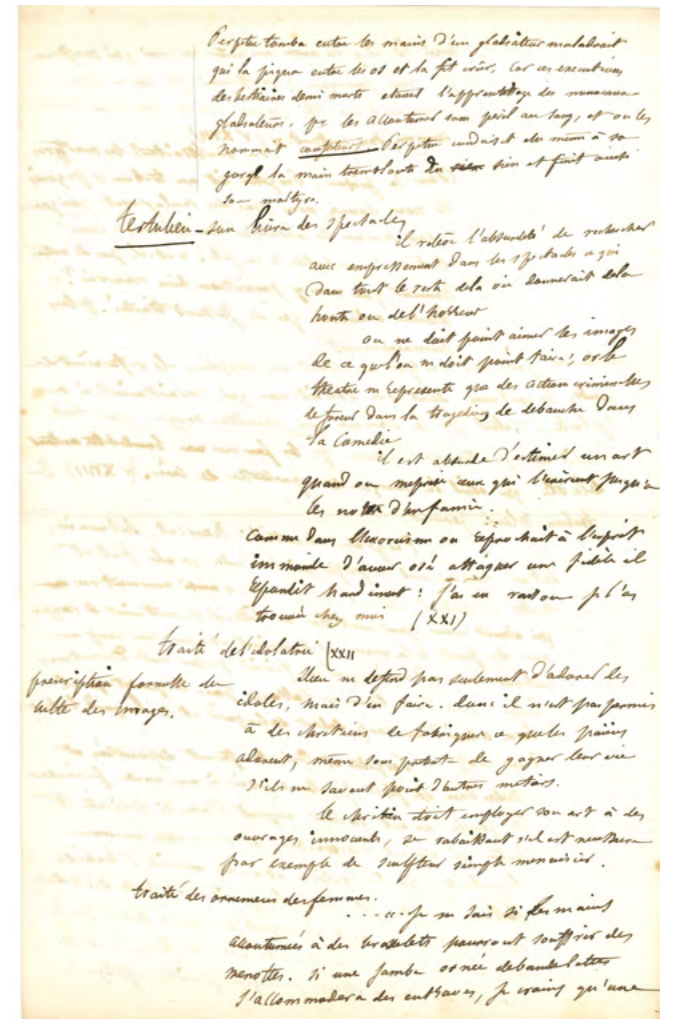 Perpetue tomba entre les mains d'un gladiateur maladroit
qui la piqua entre les os et la fit crier, car ces executions
des bestiaires demi morts etaient l'apprentissage des nouveaux
gladiateurs, pr les accoutumer sans péril au sang, et on les
nommait confecteurs. Perpetue conduisit elle même à sa
gorge la main tremblante du sien et finit ainsi
son martyre.
tertulien - son livre des spectacles
il relève l'absurdité de rechercher
avec empressement dans les spectacles ce qui
dans tout le reste de la vie donnerait de la
honte ou de l'horreur
on ne doit point aimer les images
de ce que l'on ne doit point faire, or le
theatre ne represente que des action criminelles
de fureur dans la tragedie, de debauche dans
la Comedie
il est absurde d'estimer un art
quand on meprise ceux qui l'exercent jusqu'a
les noter d'infamie.
Comme dans l'exorcisme on reprochait à l'esprit
immonde d'avoir osé attaquer une fidèle il
repondit hardiment : j'ai eu raison je l'ai
trouvée chez moi (XXI)
traité de l'idolatrie (XXII
proscription formelle du
culte des images.
Dieu ne defend pas seulement d'adorer les
idoles, mais d'en faire. donc il n'est pas permis
à des chretiens de fabriquer ce que les païens
adorent, même sous pretexte de gagner leur vie
s'ils ne savent point d'autres metiers.
le chretien doit employer son art à des
ouvrages innocents, se rabaissant s'il est necessaire
par exemple de sculpteur simple menuisier.
traité des ornemens des femmes.
.... je ne sais si des mains
accoutumées à des bracelets pourront souffrir des
menottes. si une jambe ornée de bandelettes
s'accommodera des entraves, je crains qu'une